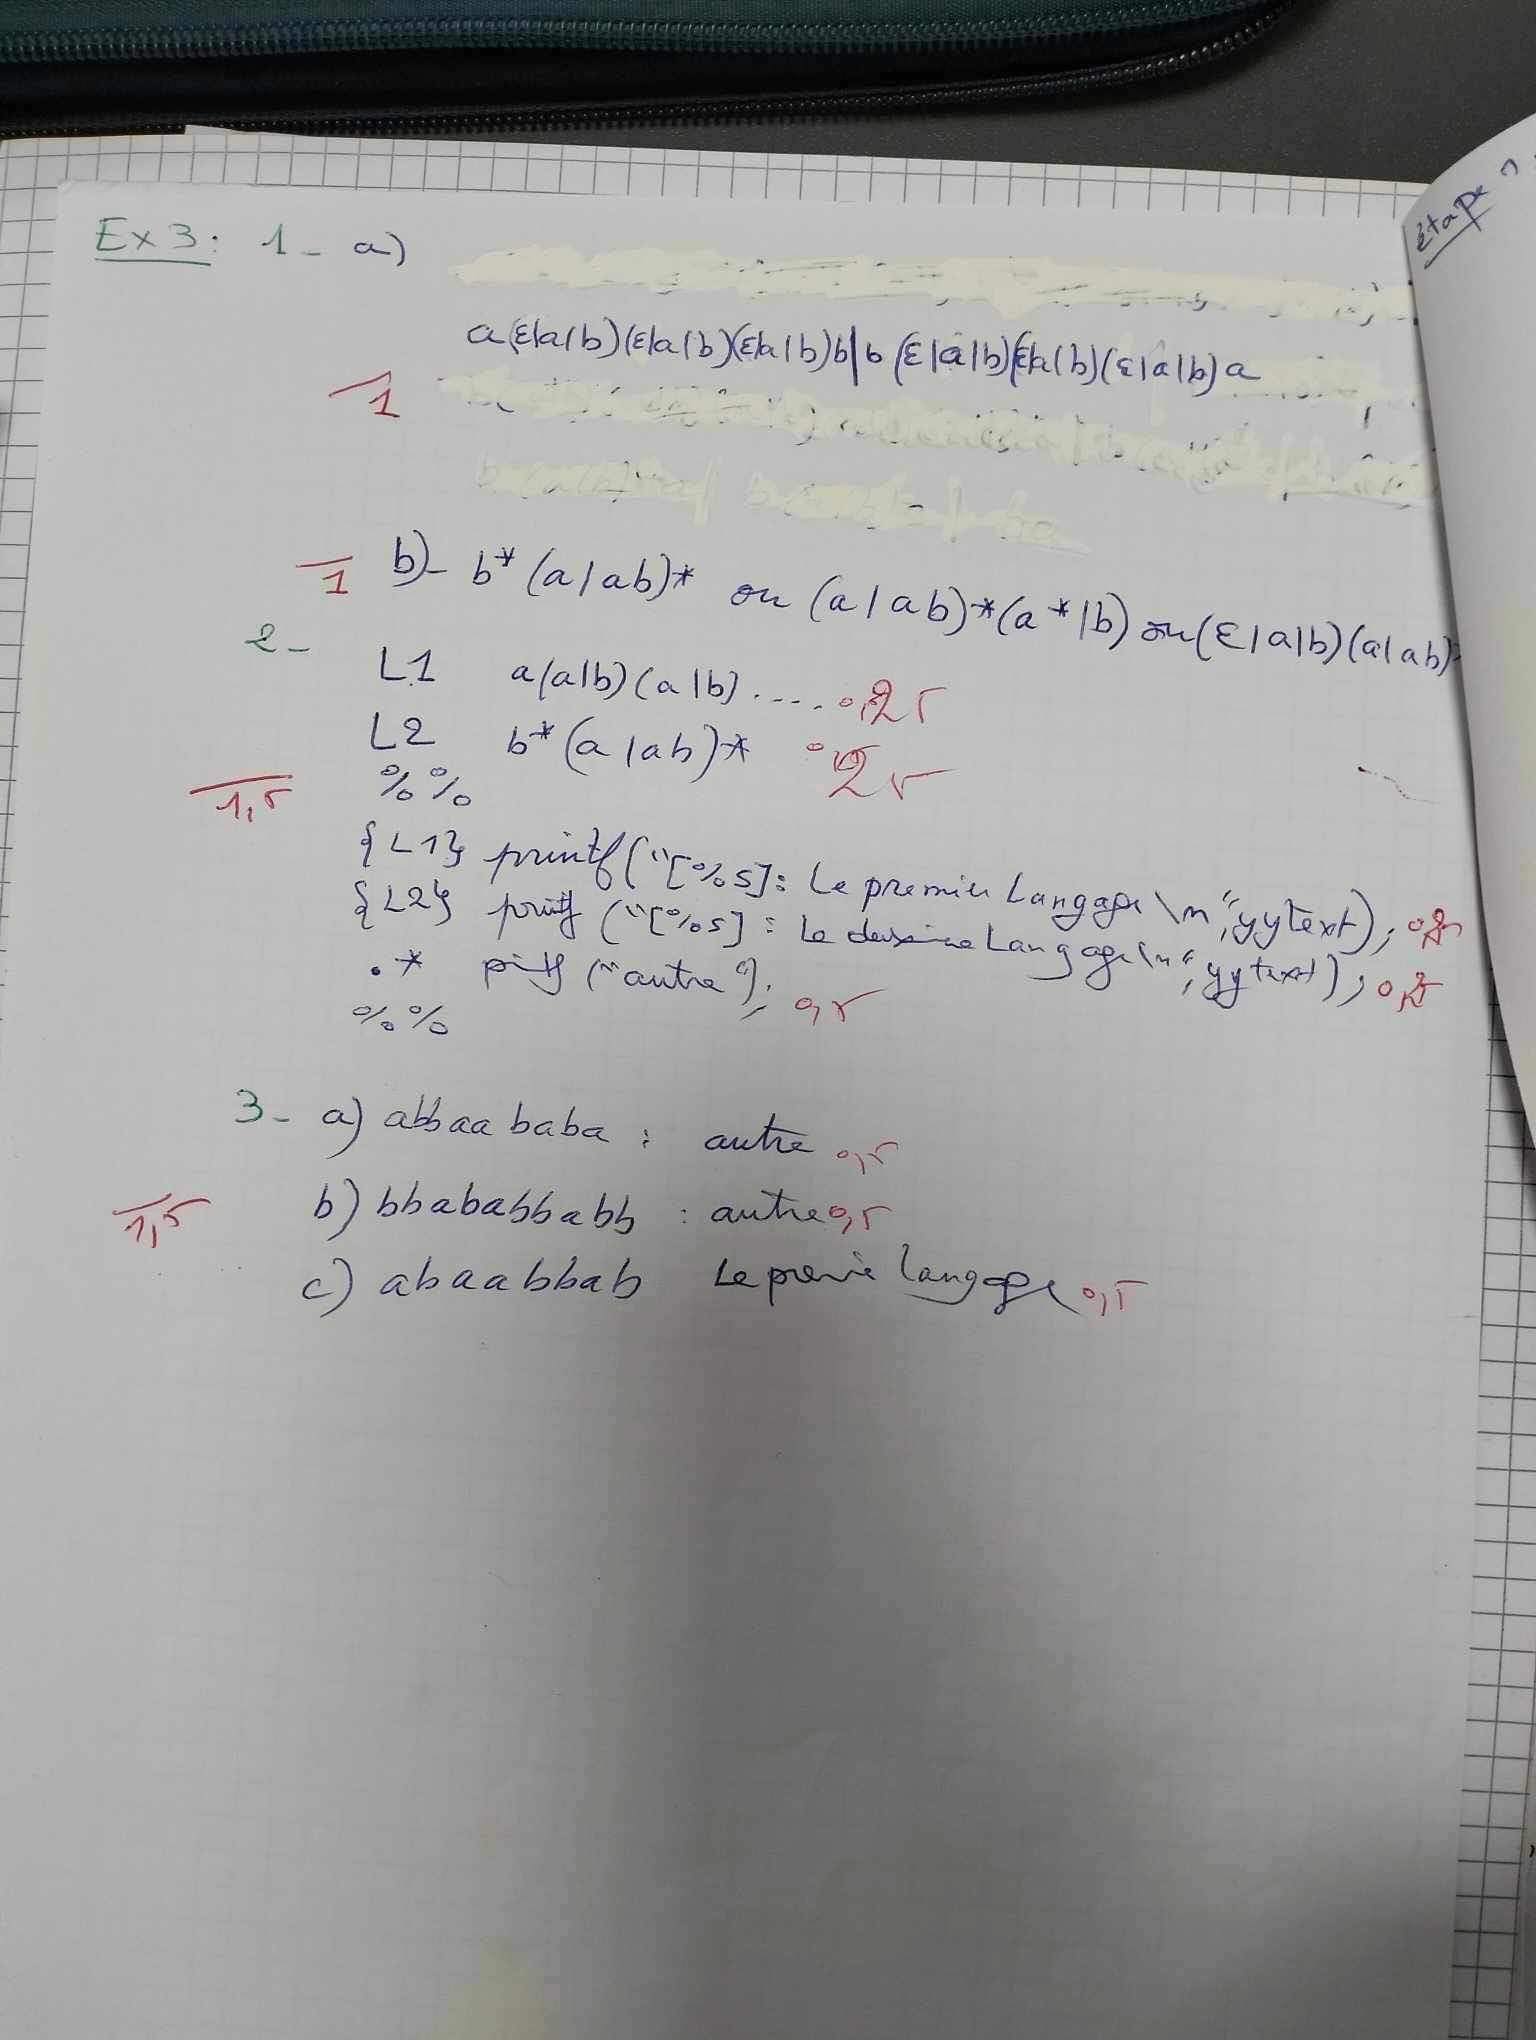 Ex 3: 1- a)
a(ε|a|b)(ε|a|b)(ε|a|b)b|b(ε|a|b)(ε|a|b)(ε|a|b)a
1
b)- b*(a|ab)* ou (a|ab)*(a*|b) ou (ε|a|b)(a|ab)*
1
2-
L1 a(a|b)(a|b)..... 0,25
L2 b*(a|ab)* 0,25
%%
1,5
{L1} printf("[%s]: Le premier Langage\n",yytext); 0,25
{L2} printf("[%s]: Le deuxième Langage\n",yytext); 0,25
.* printf("autre"); 0,5
%%
3- a) abbaababa : autre 0,5
b) bbababbabb : autre 0,5
1,5
c) abaabbab Le premie langage 0,5
étape